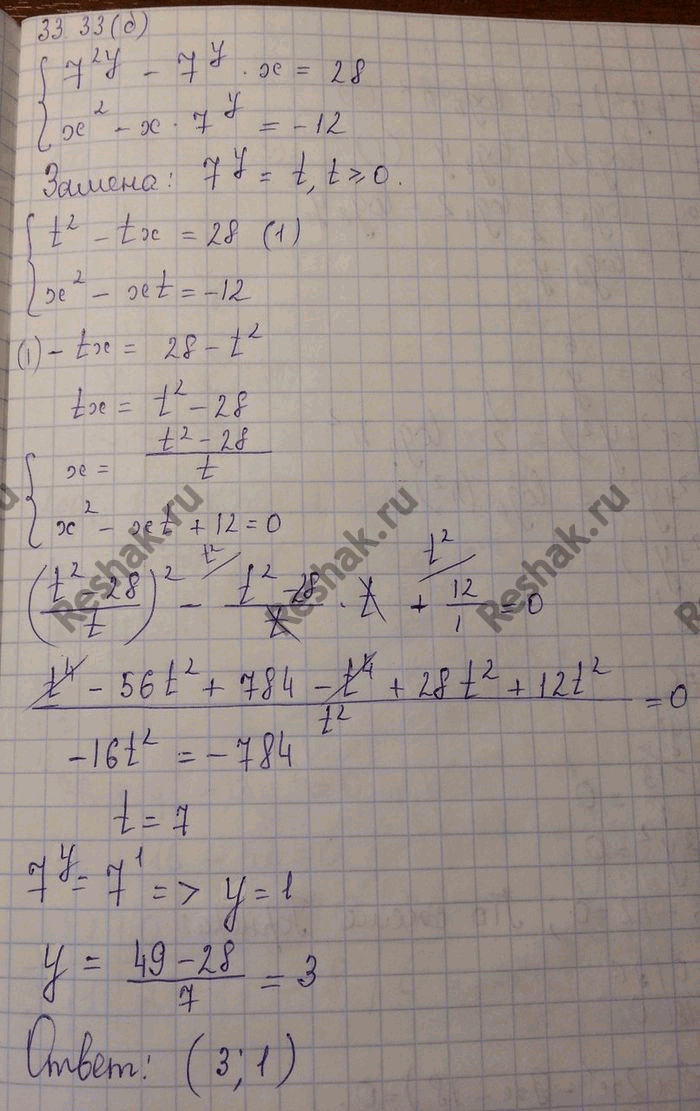 33 33(б)
7^{2y} - 7^y · x = 28
x^2 - x · 7^y = -12
Замена: 7^y = t, t ≥ 0.
t^2 - tx = 28 (1)
x^2 - xt = -12
(1) - tx = 28 - t^2
tx = t^2 - 28
x = \frac{t^2 - 28}{t}
x^2 - xt + 12 = 0
(\frac{t^2 - 28}{t})^2 - \frac{t^2 - 28}{t} · t + \frac{12}{1} = 0
\frac{t^4 - 56t^2 + 784 - t^4 + 28t^2 + 12t^2}{t^2} = 0
-16t^2 = -784
t = 7
7^y = 7^1 => y = 1
y = \frac{49 - 28}{7} = 3
Ответ: (3; 1)
Reshak.ru
Reshak.ru
Reshak.ru